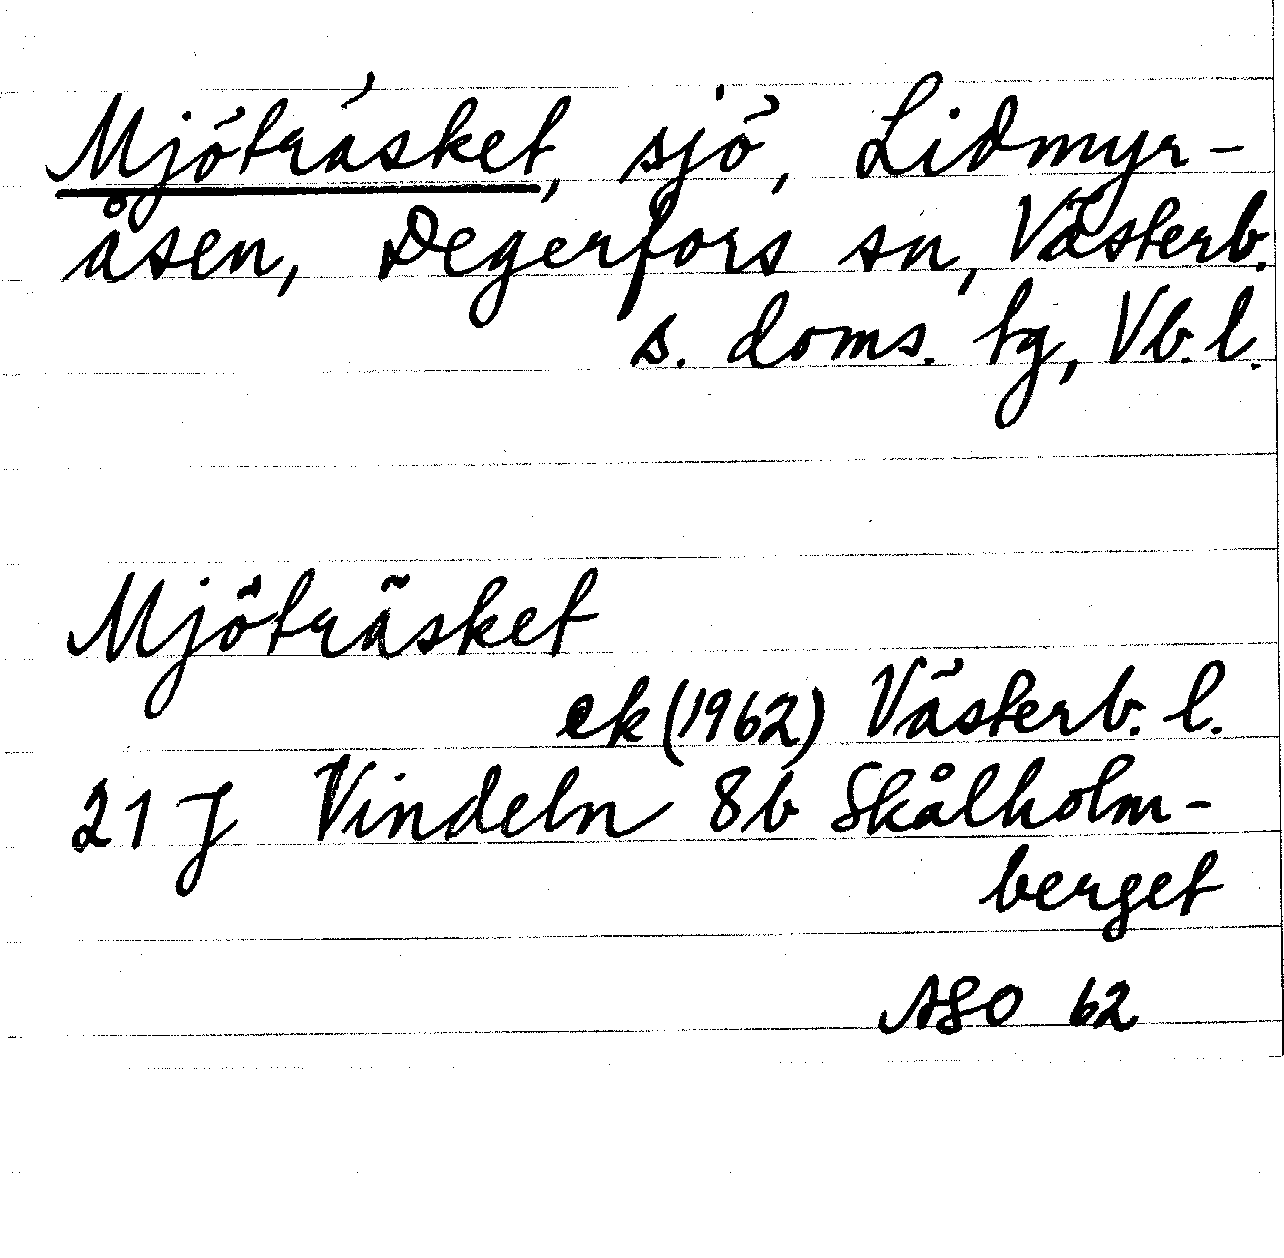 Mjöträsket, sjö, Lidmyr-
åsen, Degerfors sn, Västerb.
s. doms. tg, Vb. l.
Mjöträsket
ek (1962) Västerb. l.
21 J Vindeln 8b Skålholm-
berget
ASO 62